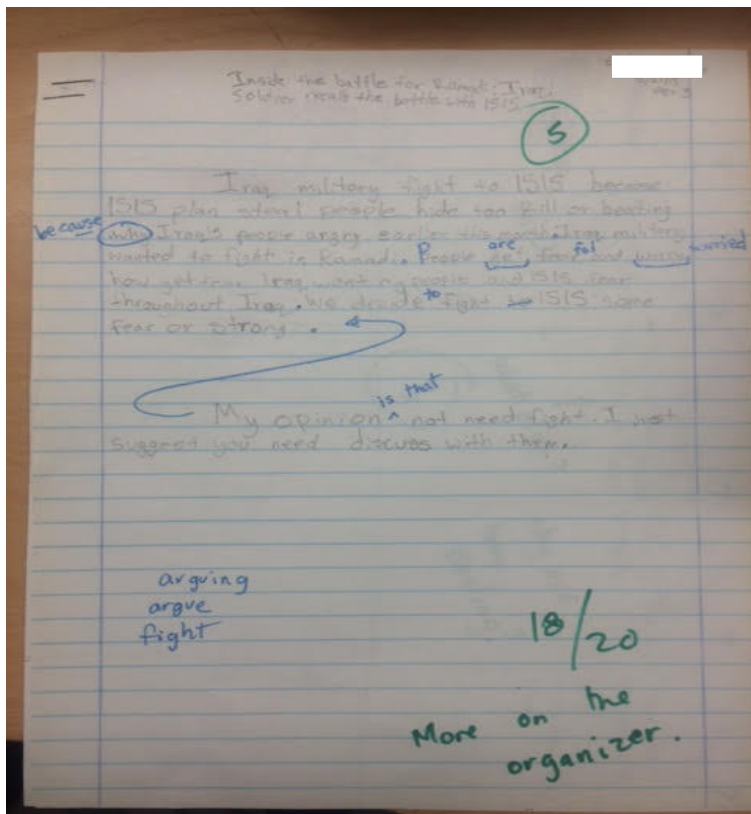 Inside the battle for Ramadi: Iraqi
Soldier recalls the battle with ISIS
5
Iraq military fight to ISIS because
ISIS plan steal people hide too kill or beating
because
why Iraq's people angry earlier this month. Iraq military
are ful worried
wanted to fight is Ramadi. People get fear and worry
how get fear Iraq people and ISIS fear
throughout Iraq. We decide to fight to ISIS some
fear or strong.
is that
My opinion ^ not need fight. I just
suggest you need discuss with them.
arguing
argue
fight
18/20
More on the
organizer.